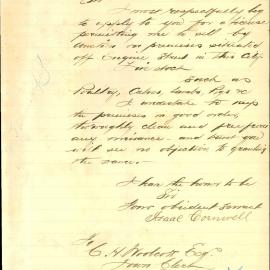 Sir
I most respectfully beg
to apply to you for a license
permitting me to sell by
auction on premises situated
off Engine Street in this City
Live stock
Such as
Poultry, Calves, Lambs, Pigs &c
I undertake to keep
the premises in good order,
thoroughly clean and free from
any nuisance and trust you
will see no objection to granting
the same.
I have the honor to be
Sir
Your obedient servant
Isaac Cornwell
To
C. H. Woolcott Esqr
Town Clerk